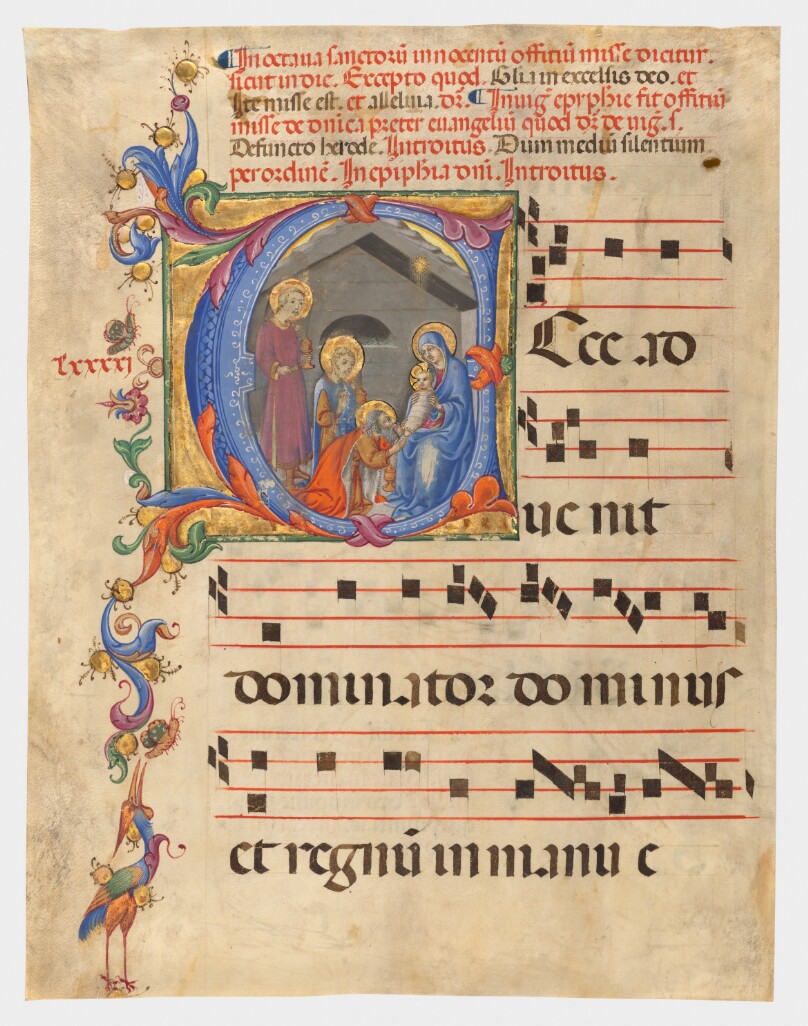 In octaua sanctorū innocentū offitiū misse dicitur.
sicut in die. Excepto quod. Glīa in excelsis deo. et
Ite misse est. et alleluia. dr̄. In uig̃ epyphie fit offitiū
misse de dn̄ica preter euangeliū quod dr̄ de uig̃. s.
Defuncto herode. Introitus. Dum mediū silentium
per ordinē. In epiphīa dn̄i. Introitus.
Ecce ad
lxxxxi
ue nit
dominator do minus
et regnū in manu e